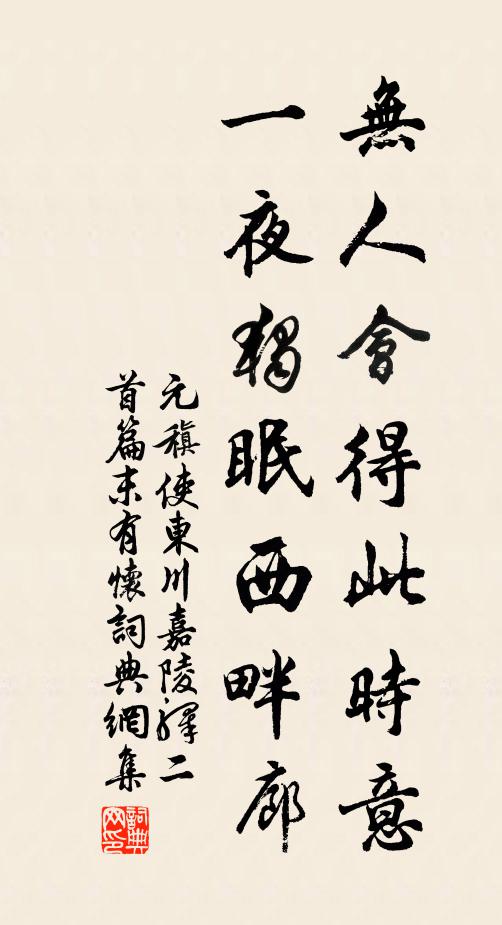 無人會得此時意
一夜獨眠西畔廊
元稹使東川嘉陵驛二
首篇末有懷詞典網集
詞典
網印